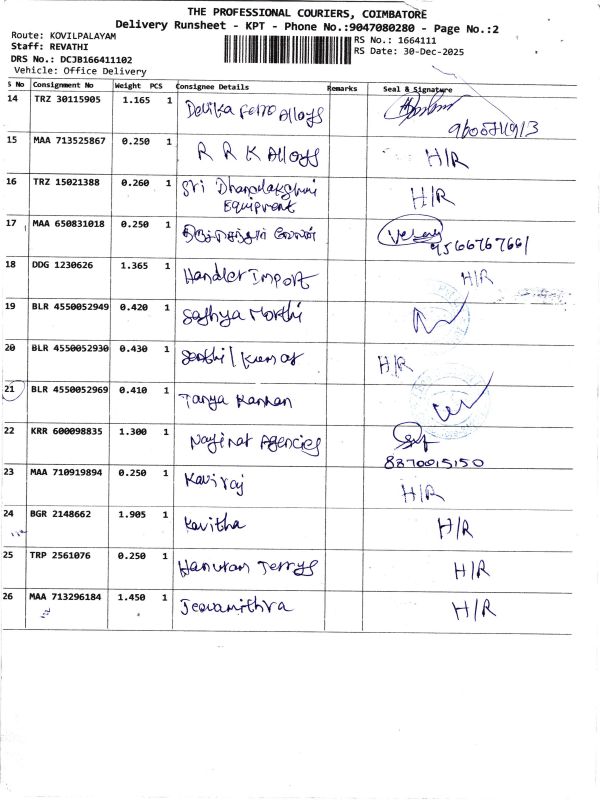 THE PROFESSIONAL COURIERS, COIMBATORE
Delivery Runsheet - KPT - Phone No.:9047080280 - Page No.:2
Route: KOVILPALAYAM
RS No.: 1664111
Staff: REVATHI
RS Date: 30-Dec-2025
DRS No.: DCJB166411102
Vehicle: Office Delivery
S No Consignment No Weight PCS Consignee Details Remarks Seal & Signature
14 TRZ 30115905 1.165 1 Devika Ferro Alloys
15 MAA 713525867 0.250 1 R R K Alloys H/R
16 TRZ 15021388 0.260 1 Sri Dhanalakshmi H/R
Equipment
17 MAA 650831018 0.250 1 9566767661
18 DDG 1230626 1.365 1 Handler Import H/R
19 BLR 4550052949 0.420 1 Sathya Morthi
20 BLR 4550052930 0.430 1 Senthil Kumar H/R
21 BLR 4550052969 0.410 1 Tanya Kannan
22 KRR 600098835 1.300 1 Agencies
8870015150
23 MAA 710919894 0.250 1 Kaviraj H/R
24 BGR 2148662 1.905 1 Kavitha H/R
25 TRP 2561076 0.250 1 H/R
26 MAA 713296184 1.450 1 Jeevamithra H/R